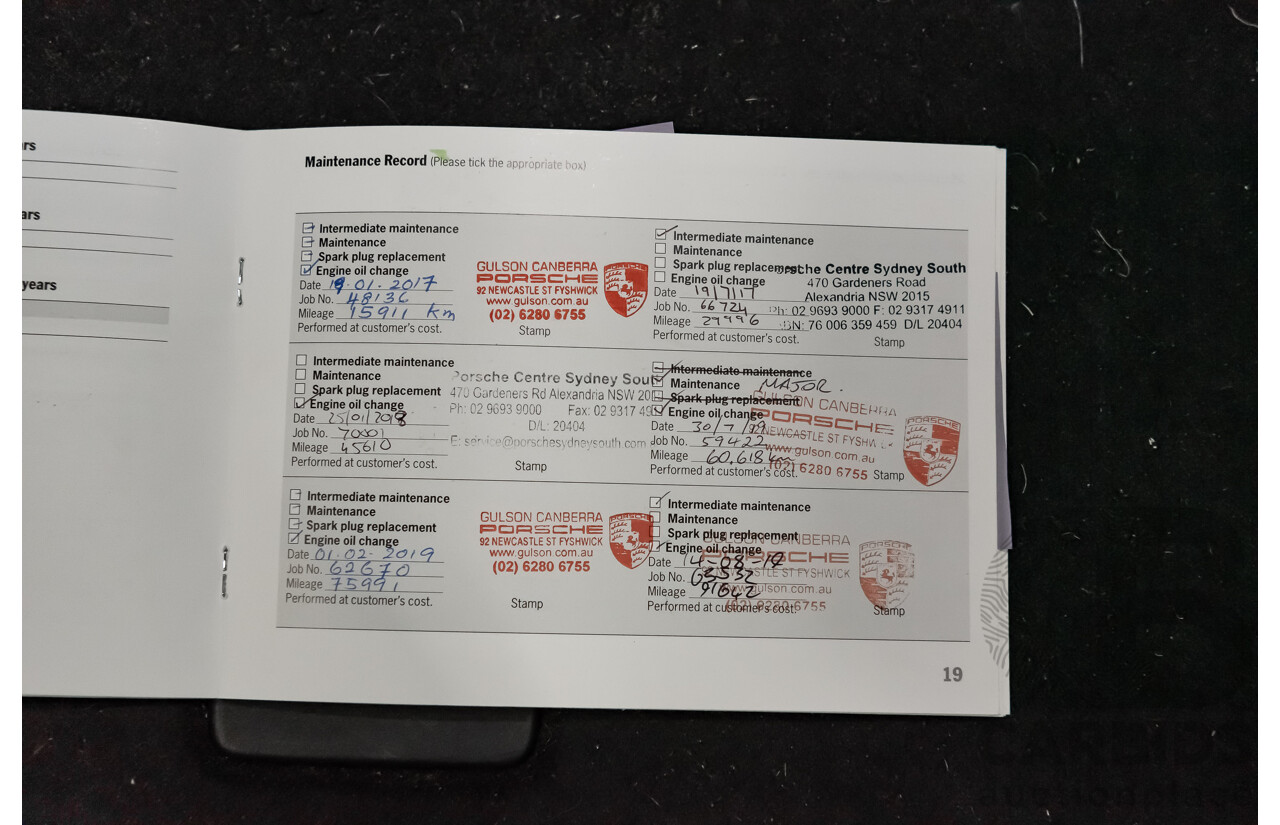 rs
ars
years
Maintenance Record (Please tick the appropriate box)
Intermediate maintenance
Maintenance
Spark plug replacement
Engine oil change
Date 19.01.2017
Job No. 48136
Mileage 15911 Km
Performed at customer's cost.
GULSON CANBERRA
PORSCHE
92 NEWCASTLE ST FYSHWICK
www.gulson.com.au
(02) 6280 6755
Stamp
PORSCHE
Intermediate maintenance
Maintenance
Spark plug replacement
Engine oil change
Date 19/7/17
Job No. 66724
Mileage 29996
Performed at customer's cost.
sche Centre Sydney South
470 Gardeners Road
Alexandria NSW 2015
Ph: 02 9693 9000 F: 02 9317 4911
BN: 76 006 359 459 D/L 20404
Stamp
Intermediate maintenance
Maintenance
Spark plug replacement
Engine oil change
Date 25/01/2018
Job No. 70001
Mileage 45610
Performed at customer's cost.
Porsche Centre Sydney South
470 Gardeners Rd Alexandria NSW 20
Ph: 02 9693 9000 Fax: 02 9317 49
D/L: 20404
E: service@porschesydneysouth.com
Stamp
Intermediate maintenance
Maintenance MAJOR.
Spark plug replacement
Engine oil change
Date 30/7/
Job No. 59422
Mileage 60,618 km
Performed at customer's cost.
GULSON CANBERRA
PORSCHE
NEWCASTLE ST FYSHW
www.gulson.com.au
(02) 6280 6755
Stamp
PORSCHE
Intermediate maintenance
Maintenance
Spark plug replacement
Engine oil change
Date 01.02.2019
Job No. 62670
Mileage 75991
Performed at customer's cost.
GULSON CANBERRA
PORSCHE
92 NEWCASTLE ST FYSHWICK
www.gulson.com.au
(02) 6280 6755
Stamp
PORSCHE
Intermediate maintenance
Maintenance
Spark plug replacement
Engine oil change
Date 14-08-19
Job No.
Mileage
Performed at customer's cost.
GULSON CANBERRA
PORSCHE
CASTLE ST FYSHWICK
www.gulson.com.au
(02) 6280 6755
Stamp
PORSCHE
19
CARBIDS